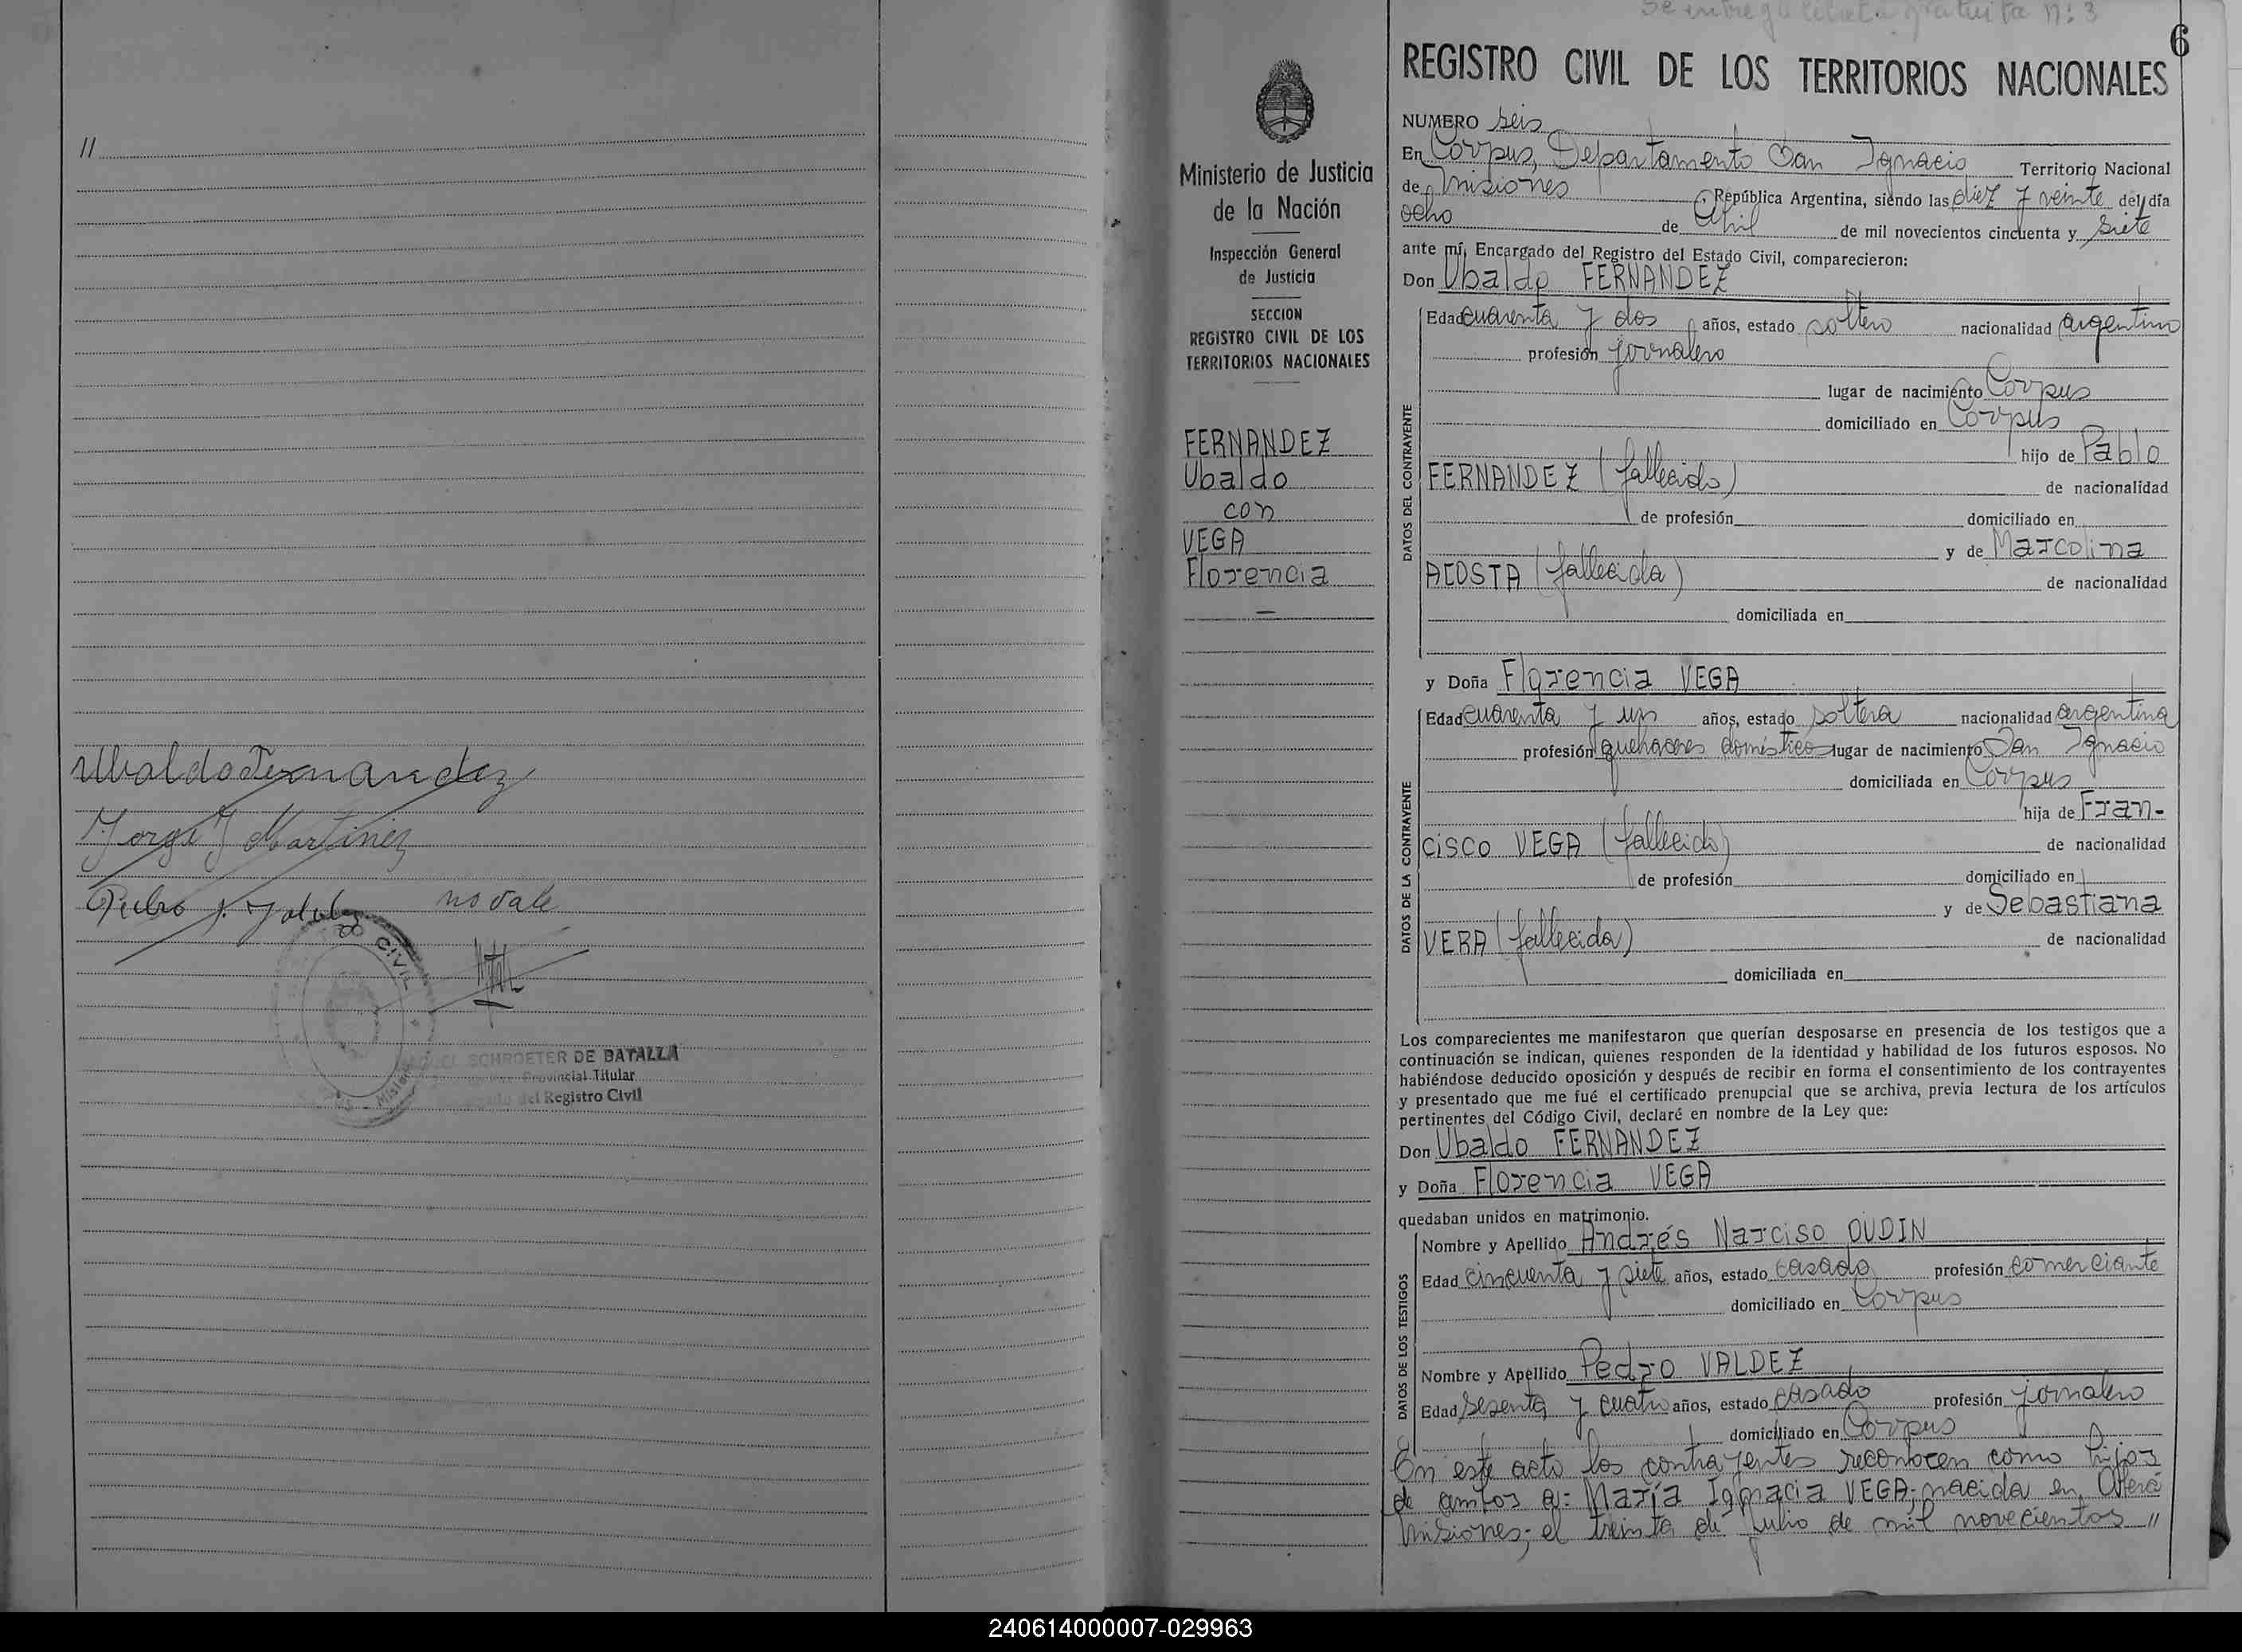 //
Ubaldo Fernandez
Jorge J Martinez
Pedro no vale
CIVIL
SCHROETER DE BATALLA
Provincial Titular
del Registro Civil
Se entregó libreta gratuita nº 3
6
Ministerio de Justicia
de la Nación
Inspección General
de Justicia
SECCION
REGISTRO CIVIL DE LOS
TERRITORIOS NACIONALES
FERNANDEZ
Ubaldo
con
VEGA
Florencia
REGISTRO CIVIL DE LOS TERRITORIOS NACIONALES
NUMERO seis
En Corpus, Departamento San Ignacio Territorio Nacional
de Misiones República Argentina, siendo las diez y veinte del día
ocho de Abril de mil novecientos cincuenta y siete
ante mí, Encargado del Registro del Estado Civil, comparecieron:
Don Ubaldo FERNANDEZ
DATOS DEL CONTRAYENTE
Edad cuarenta y dos años, estado soltero nacionalidad argentino
profesión jornalero
lugar de nacimiento Corpus
domiciliado en Corpus
hijo de Pablo
FERNANDEZ (fallecido) de nacionalidad
de profesión domiciliado en
y de Marcolina
ACOSTA (fallecida) de nacionalidad
domiciliada en
y Doña Florencia VEGA
DATOS DE LA CONTRAYENTE
Edad cuarenta y un años, estado soltera nacionalidad argentina
profesión quehaceres domésticos lugar de nacimiento San Ignacio
domiciliada en Corpus
hija de Fran-
cisco VEGA (fallecido) de nacionalidad
de profesión domiciliado en
y de Sebastiana
VERA (fallecida) de nacionalidad
domiciliada en
Los comparecientes me manifestaron que querían desposarse en presencia de los testigos que a
continuación se indican, quienes responden de la identidad y habilidad de los futuros esposos. No
habiéndose deducido oposición y después de recibir en forma el consentimiento de los contrayentes
y presentado que me fué el certificado prenupcial que se archiva, previa lectura de los artículos
pertinentes del Código Civil, declaré en nombre de la Ley que:
Don Ubaldo FERNANDEZ
y Doña Florencia VEGA
quedaban unidos en matrimonio.
DATOS DE LOS TESTIGOS
Nombre y Apellido Andrés Narciso OUDIN
Edad cincuenta y siete años, estado casado profesión comerciante
domiciliado en Corpus
Nombre y Apellido Pedro VALDEZ
Edad sesenta y cuatro años, estado casado profesión jornalero
domiciliado en Corpus
En este acto los contrayentes reconocen como hijos
de ambos a: María Ignacia VEGA; nacida en
Misiones, el treinta de Julio de mil novecientos //
240614000007-029963